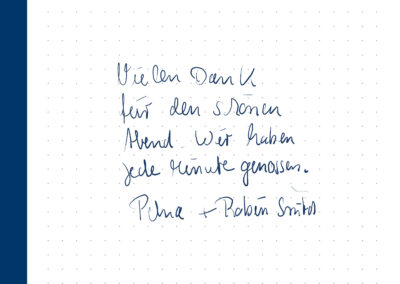 Vielen Dank
für den schönen
Abend. Wir haben
jede Minute genossen.
+ Robin